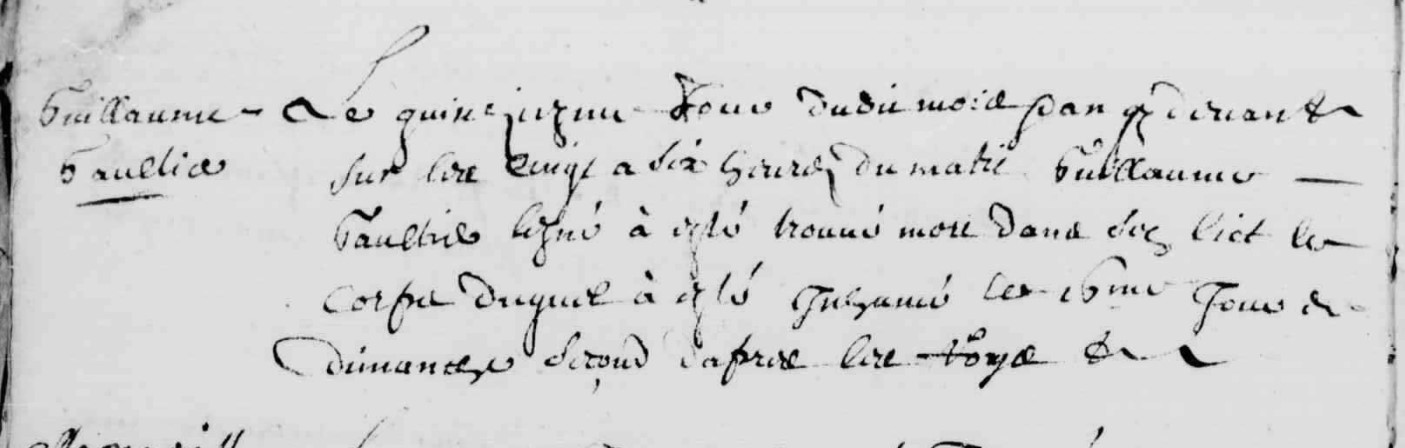 Guillaume
Gaultier
Le quinziesme Jour dudit mois & an cy devant
sur les cinq a six heures du matin Guillaume
Gaultier l'esné à esté trouvé mort dans son lict le
corps duquel à esté Inhumé le 16me Jour de
dimanche second d'apres les Roys &